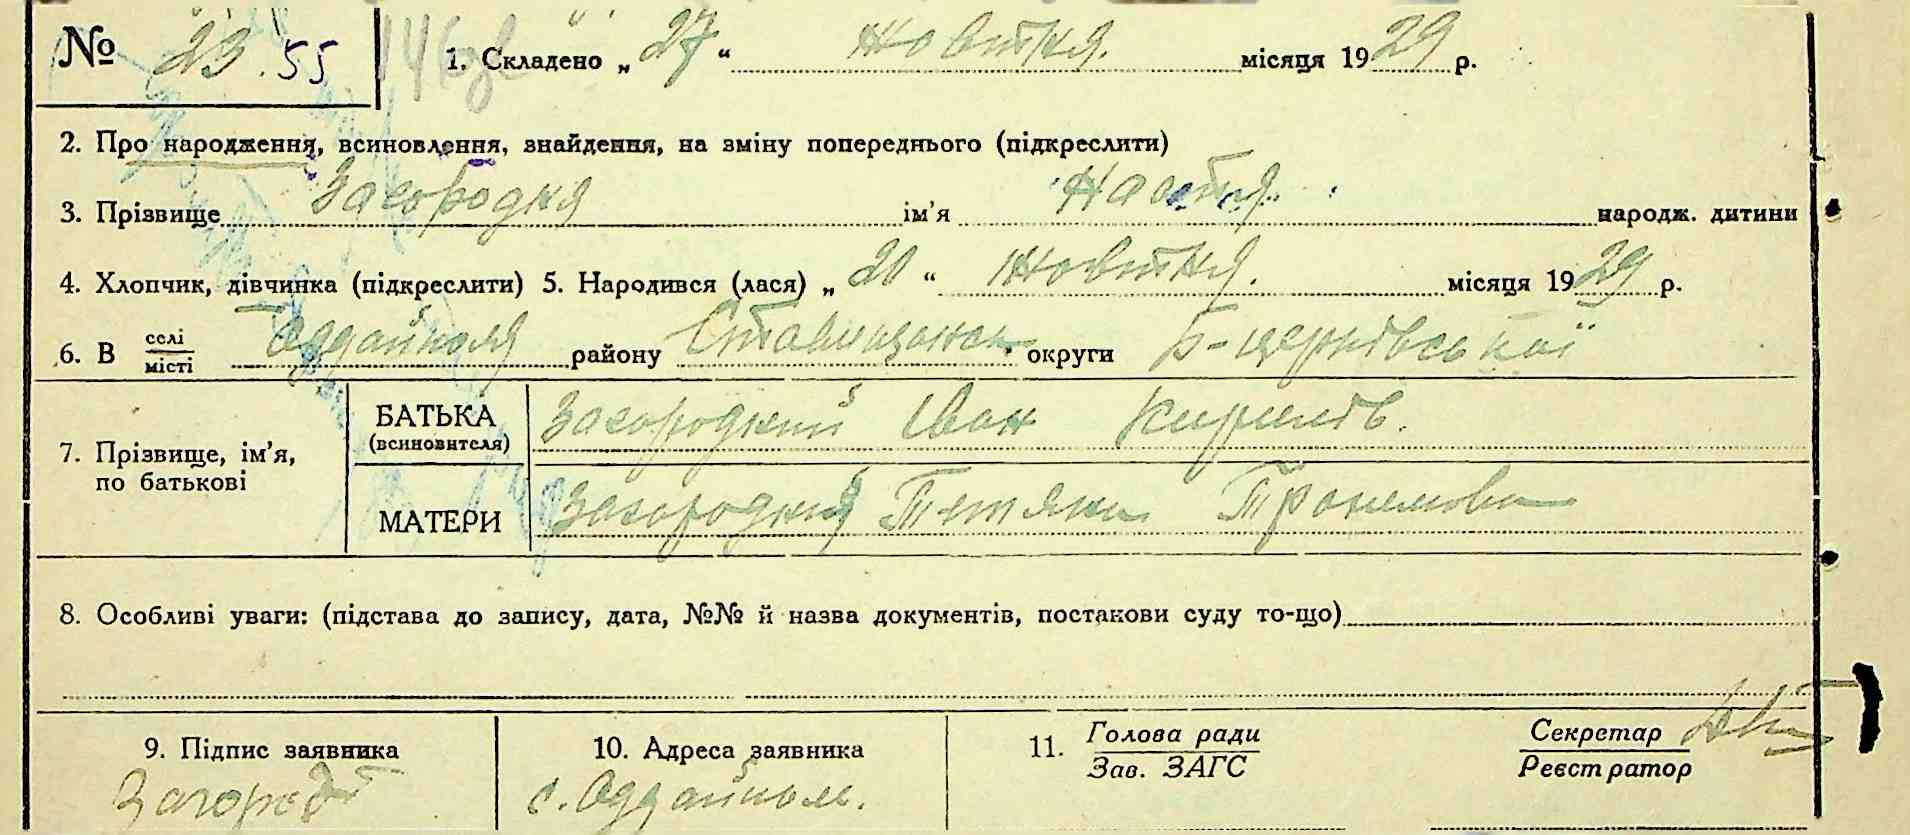 № 23. 55 1. Складено „ 27 “ жовтня. місяця 19 29 р.
2. Про народження, всиновлення, знайдення, на зміну попереднього (підкреслити)
3. Прізвище Загородня ім’я Настя. народж. дитини
4. Хлопчик, дівчинка (підкреслити) 5. Народився (лася) „ 20 “ жовтня. місяця 19 29 р.
6. В селі/місті Оддайполя району Ставищанськ. округи Б-церківської
7. Прізвище, ім’я, по батькові
БАТЬКА (всиновителя) Загородний Іван Кирилів.
МАТЕРИ Загородня Тетяна
8. Особливі уваги: (підстава до запису, дата, №№ й назва документів, постанови суду то-що)
9. Підпис заявника 10. Адреса заявника 11. Голова ради Секретар
Зав. ЗАГС Реєстратор
с. Оддайпол.